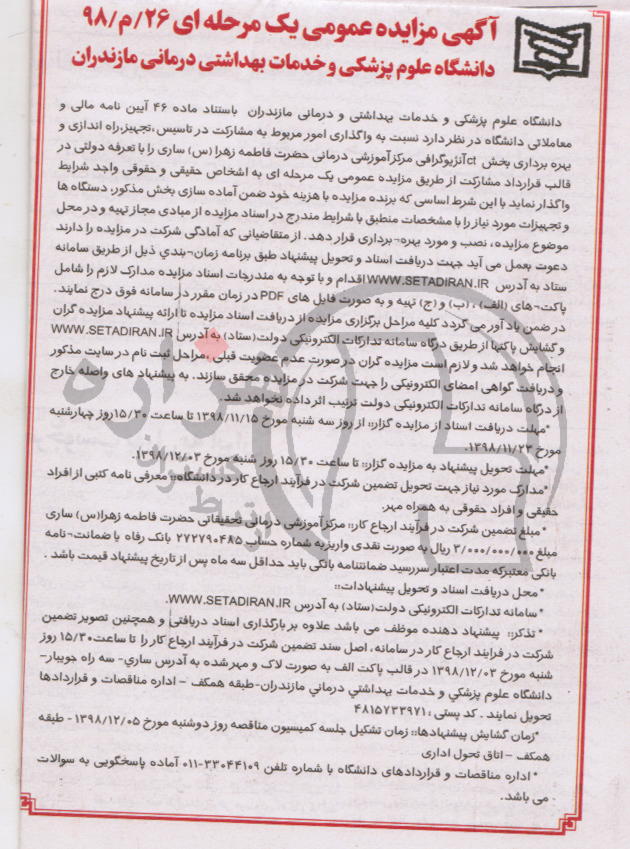 آگهی مزایده عمومی یک مرحله ای ۲۶/م/۹۸
دانشگاه علوم پزشکی و خدمات بهداشتی درمانی مازندران
دانشگاه علوم پزشکی و خدمات بهداشتی و درمانی مازندران باستناد ماده ۴۶ آیین نامه مالی و
معاملاتی دانشگاه در نظر دارد نسبت به واگذاری امور مربوط به مشارکت در تاسیس،تجهیز،راه اندازی و
بهره برداری بخش ct آنژیوگرافی مرکز آموزشی درمانی حضرت فاطمه زهرا (س) ساری را با تعرفه دولتی در
قالب قرارداد مشارکت از طریق مزایده عمومی یک مرحله ای به اشخاص حقیقی و حقوقی واجد شرایط
واگذار نماید با این شرط اساسی که برنده مزایده با هزینه خود ضمن آماده سازی بخش مذکور، دستگاه ها
و تجهیزات مورد نیاز را با مشخصات منطبق با شرایط مندرج در اسناد مزایده از مبادی مجاز تهیه و در محل
موضوع مزایده، نصب و مورد بهره¬برداری قرار دهد. از متقاضیانی که آمادگی شرکت در مزایده را دارند
دعوت بعمل می آید جهت دریافت اسناد و تحویل پیشنهاد طبق برنامه زمان¬بندي ذیل از طریق سامانه
ستاد به آدرس WWW.SETADIRAN.IR اقدام و با توجه به مندرجات اسناد مزایده مدارک لازم را شامل
پاکت¬های (الف) ، (ب) و (ج) تهیه و به صورت فایل های PDF در زمان مقرر در سامانه فوق درج نمایند.
در ضمن یاد آور می گردد کلیه مراحل برگزاری مزایده از دریافت اسناد مزایده تا ارائه پیشنهاد مزایده گران
و گشایش پاکتها از طریق درگاه سامانه تدارکات الکترونیکی دولت(ستاد) به آدرس WWW.SETADIRAN.IR
انجام خواهد شد و لازم است مزایده گران در صورت عدم عضویت قبلی ،مراحل ثبت نام در سایت مذکور
و دریافت گواهی امضای الکترونیکی را جهت شرکت در مزایده محقق سازند. به پیشنهاد های واصله خارج
از درگاه سامانه تدارکات الکترونیکی دولت ترتیب اثر داده نخواهد شد
*مهلت دریافت اسناد از مزایده گزار:: از روز سه شنبه مورخ ۱۳۹۸/۱۱/۱۵ تا ساعت ۱۵/۳۰ روز چهارشنبه
مورخ ۱۳۹۸/۱۱/۲۳.
*مهلت تحویل پیشنهاد به مزایده گزار:: تا ساعت ۱۵/۳۰ روز شنبه مورخ ۱۳۹۸/۱۲/۰۳.
*مدارک مورد نیاز جهت تحویل تضمین شرکت در فرآیند ارجاع کار در دانشگاه:: معرفی نامه کتبی از افراد
حقیقی و افراد حقوقی به همراه مهر.
*مبلغ تضمین شرکت در فرآیند ارجاع کار:: مرکز آموزشی درمانی تحقیقاتی حضرت فاطمه زهرا(س) ساری
مبلغ ۳/۰۰۰/۰۰۰/۰۰۰ ریال به صورت نقدی واریز به شماره حساب ۲۷۲۷۹۰۴۸۵ بانک رفاه یا ضمانت¬نامه
بانکی معتبر که مدت اعتبار سررسید ضمانتنامه بانکی باید حداقل سه ماه پس از تاریخ پیشنهاد قیمت باشد .
*محل دریافت اسناد و تحویل پیشنهادات::
*سامانه تدارکات الکترونیکی دولت(ستاد) به آدرس WWW.SETADIRAN.IR.
*تذکر:: پیشنهاد دهنده موظف می باشد علاوه بر بارگذاری اسناد دریافتی و همچنین تصویر تضمین
شرکت در فرایند ارجاع کار در سامانه، اصل سند تضمین شرکت در فرآیند ارجاع کار را تا ساعت ۱۵/۳۰ روز
شنبه مورخ ۱۳۹۸/۱۲/۰۳ در قالب پاکت الف به صورت لاک و مهر شده به آدرس ساري- سه راه جویبار-
دانشگاه علوم پزشکي و خدمات بهداشتي درماني مازندران-طبقه همکف - اداره مناقصات و قراردادها
تحویل نمایند . کد پستی : ۴۸۱۵۷۳۳۹۷۱
*زمان گشایش پیشنهادها:: زمان تشکیل جلسه کمیسیون مناقصه روز دوشنبه مورخ ۱۳۹۸/۱۲/۰۵ - طبقه
همکف - اتاق تحول اداری
*اداره مناقصات و قراردادهای دانشگاه با شماره تلفن ۳۳۰۴۴۱۰۹-۰۱۱ آماده پاسخگویی به سوالات
می باشد.
هزاره